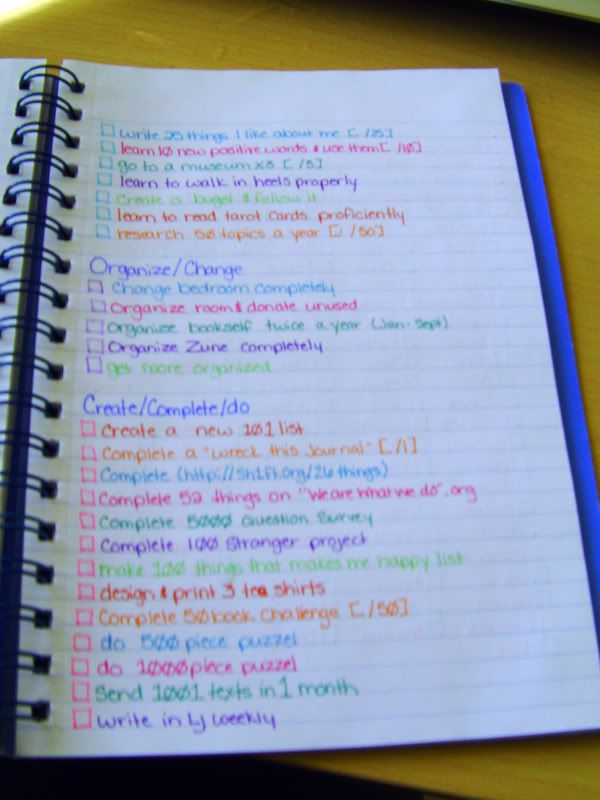 write 25 things I like about me [ /25]
learn 10 new positive words & use them [ /10]
go to a museum x3 [ /3]
learn to walk in heels properly
Create a buget & follow it
learn to read tarot cards proficiently
research 50 topics a year [ /50]
Organize/Change
Change bedroom completely
Organize room & donate unused
Organize bookself twice a year (Jan-Sept)
Organize Zune completely
get more organized
Create/Complete/do
Create a new 101 list
Complete a "wreck this Journal" [ /1]
Complete (http://sh1ft.org/26things)
Complete 52 things on "We are what we do".org
Complete 5000 Question Survey
Complete 100 Stranger project
make 100 things that makes me happy list
design & print 3 tea shirts
Complete 50 book challenge [ /50]
do 500 piece puzzel
do 1000 piece puzzel
Send 1001 texts in 1 month
write in Lj weekly